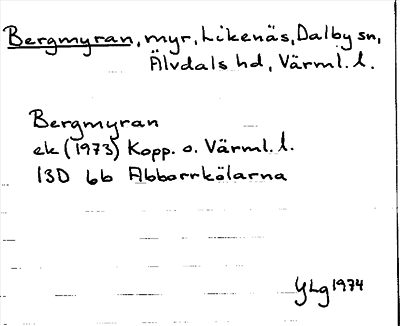 Bergmyran, myr, Likenäs, Dalby sn,
Älvdals hd, Värml. l.
Bergmyran
ek (1973) Kopp. o. Värml. l.
13D 6b Abborrkölarna
YLg 1974